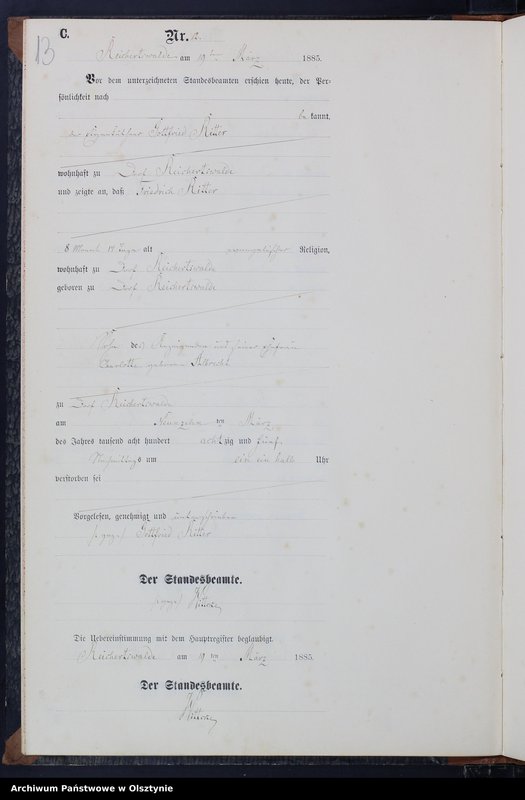 13
C.
Nr. 12.
Reichertswalde am 19ten März 1885.
Vor dem unterzeichneten Standesbeamten erschien heute, der Per-
sönlichkeit nach
be kannt,
der Eigenkäthner Gottfried Ritter
wohnhaft zu Dorf Reichertswalde
und zeigte an, daß Friedrich Ritter
8 Monat 17 Tage alt evangelischer Religion,
wohnhaft zu Dorf Reichertswalde
geboren zu Dorf Reichertswalde
Sohn des Anzeigenden und seiner Ehefrau
Charlotte geborene Albrecht
zu Dorf Reichertswalde
am Neunzehnten März
des Jahres tausend acht hundert achtzig und fünf
Vormittags um ein halb Uhr
verstorben sei
Vorgelesen, genehmigt und unterschrieben
(:gez:) Gottfried Ritter
Der Standesbeamte.
(:gez:)
Die Uebereinstimmung mit dem Hauptregister beglaubigt.
Reichertswalde am 19ten März 1885.
Der Standesbeamte.
Archiwum Państwowe w Olsztynie